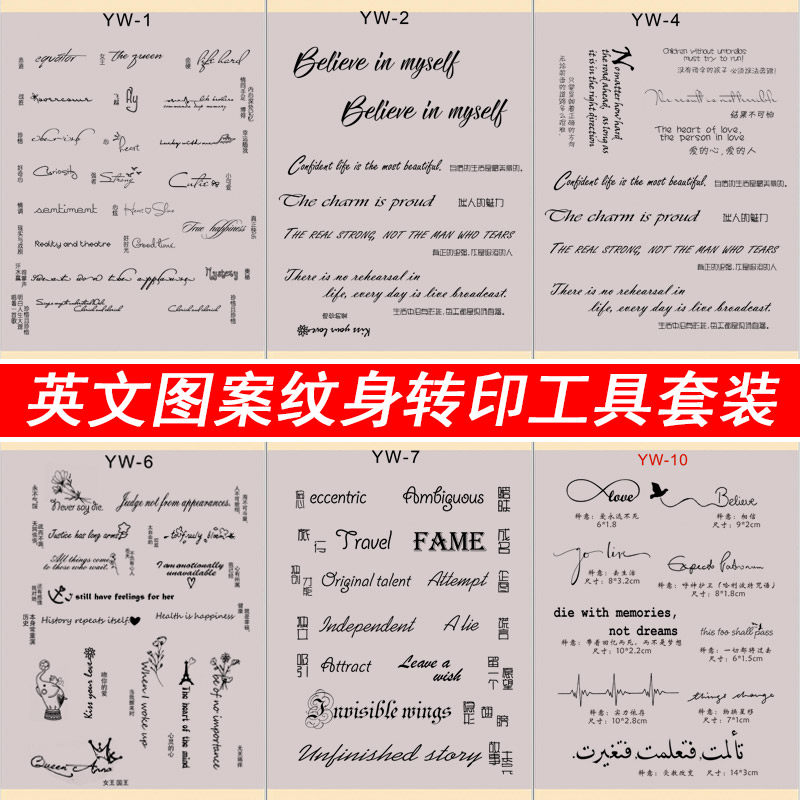 YW-1
equator
女王
the queen
壁咚
left hard
战胜
飞越
fly
内心深处记忆
珍惜
cherish
心
heart
幸运随我
好奇心
Curiosity
强者
Strong
Cutie
小可爱
情调
sentiment
True happiness
真正快乐
Reality and theatre
好时光
Good time
Mystery
奥秘
YW-2
Believe in myself
Believe in myself
Confident life is the most beautiful.
自信的生活是最美丽的。
The charm is proud
做人的魅力
THE REAL STRONG, NOT THE MAN WHO TEARS
真正的坚强，不是没泪的人
There is no rehearsal in
life, every day is live broadcast.
生活中没有彩排，每天都是现场直播。
Kiss your love
YW-4
No matter how hard
the road ahead, as long as
it is in the right direction
Children without umbrellas
must try to run!
没有雨伞的孩子 必须拼命奔跑!
The result is not terrible
结果不可怕
The heart of love,
the person in love
爱的心,爱的人
Confident life is the most beautiful.
自信的生活是最美丽的。
The charm is proud
做人的魅力
THE REAL STRONG, NOT THE MAN WHO TEARS
真正的坚强，不是没泪的人
There is no rehearsal in
life, every day is live broadcast.
生活中没有彩排，每天都是现场直播。
英文图案纹身转印工具套装
YW-6
永不气馁
Never say die.
Judge not from appearances.
人不可貌相，海不可斗量。
Justice has long arms
天网恢恢，疏而不漏。
All things come
to those who wait.
I am emotionally
unavailable
我已经心有所属
still have feelings for her
History repeats itself
Health is happiness
健康就是幸福。
Kiss your love
吻你的爱
When I woke up
当我醒来时
The heart of the mind
心灵的心
be of no importance
无关痛痒
Queen Anna
女王 国王
YW-7
eccentric
Ambiguous
旅行
Travel
FAME
成名
独创才能
Original talent
Attempt
企图
独立
Independent
A lie
谎言
吸引
Attract
Leave a
wish
留一个愿望
Invisible wings
隐形的翅膀
Unfinished story
YW-10
love
释意：爱永远不死
6*1.8
Believe
释意：相信
尺寸：9*2cm
go live
释意：去生活
尺寸：8*3.2cm
Expecto Patronum
释意：呼神护卫（哈利波特咒语）
尺寸：8*1.8cm
die with memories,
not dreams
释意：带着回忆而死，而不是梦想
尺寸：10*2.2cm
this too shall pass
释意：一切都将过去
尺寸：6*1.5cm
释意：实力依存
尺寸：10*2.8cm
things change
释意：物换星移
尺寸：7*1cm
تألمت، فتعلمت، فتغيرت.
释意：失教改变 尺寸：14*3cm